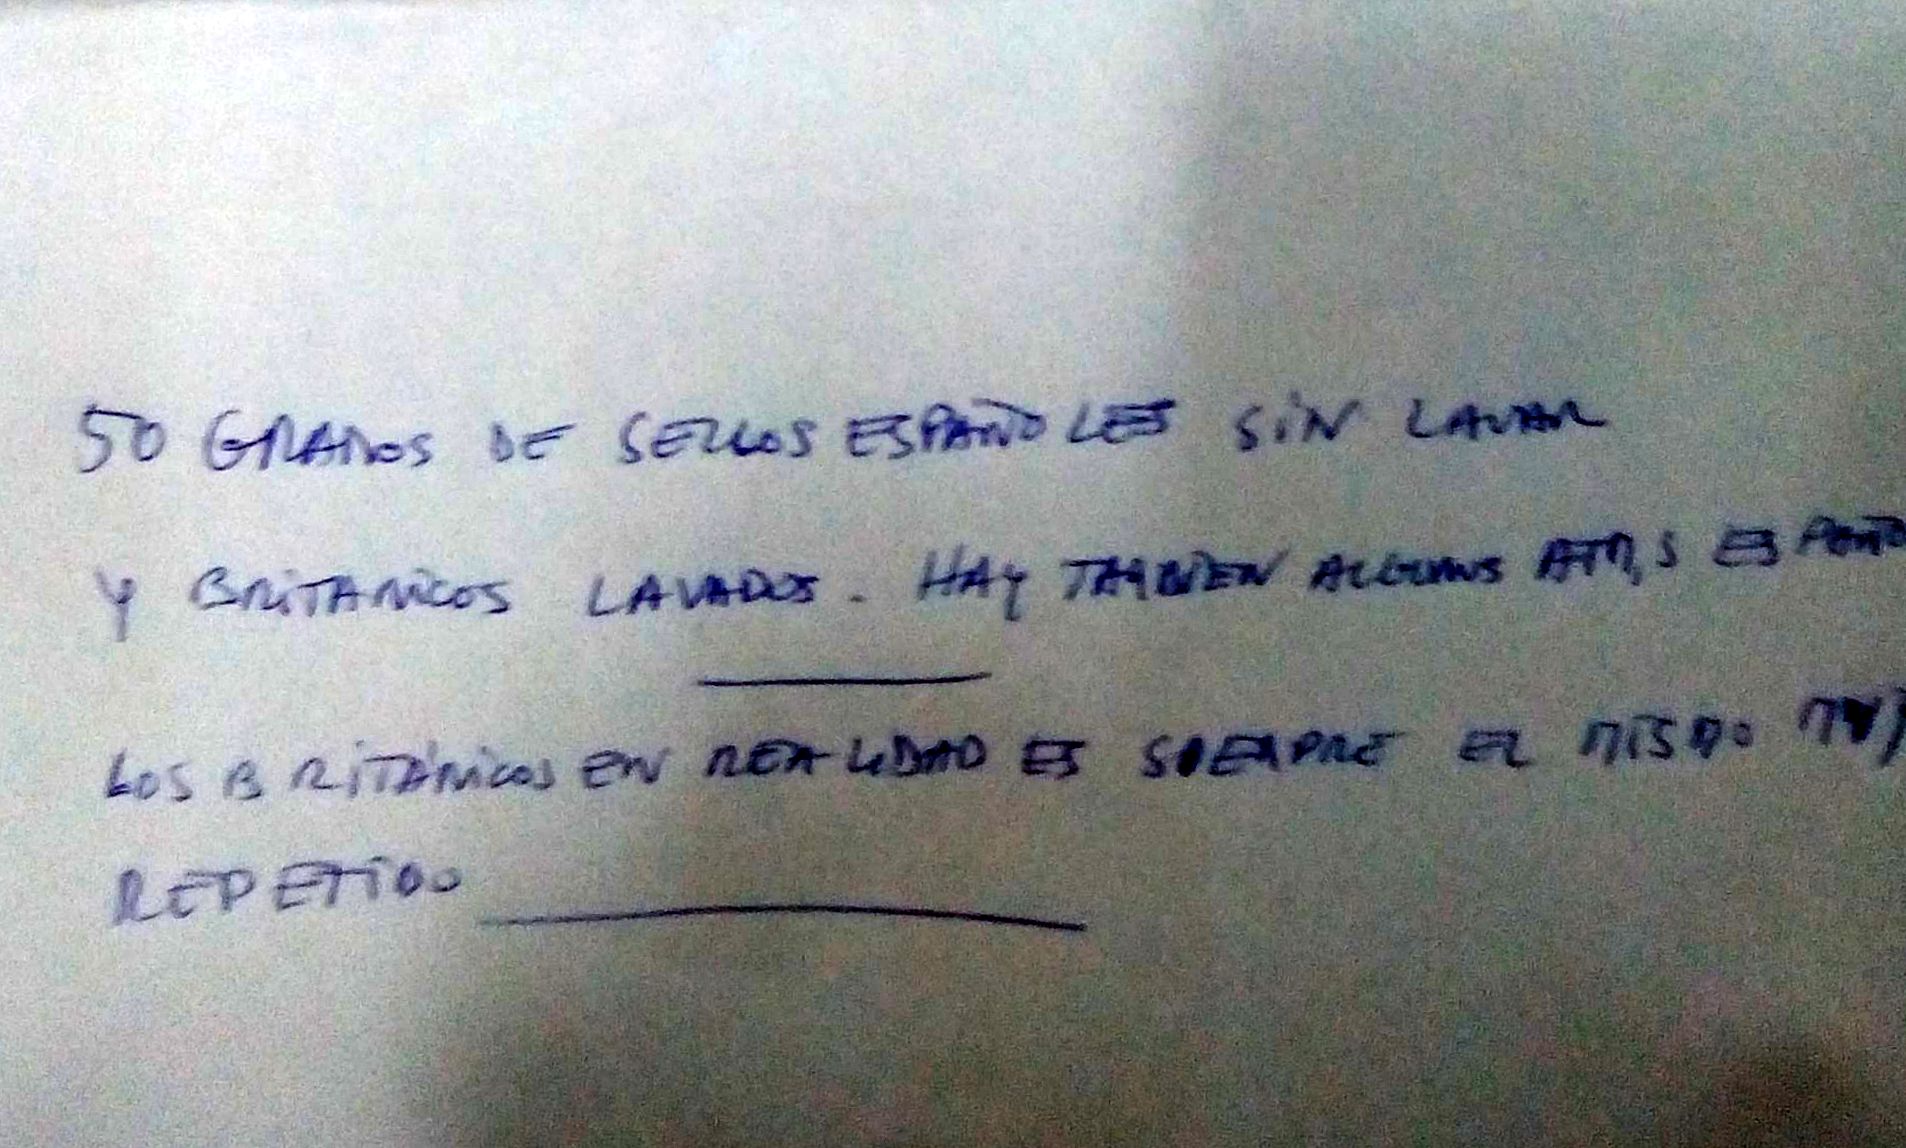 50 GRAMOS DE SELLOS ESPAÑOLES SIN LAVAR
Y BRITANICOS LAVADOS. HAY TAMBIEN ALGUNOS ATM,S ESPAÑO
LOS BRITÁNICOS EN REALIDAD ES SIEMPRE EL MISMO
REPETIDO